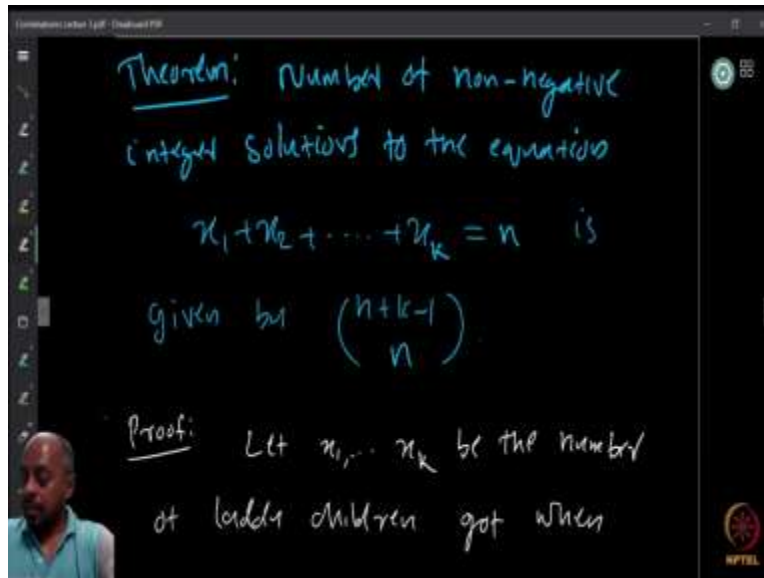 Combinatorics Lecture 1.pdf - Drawboard PDF
Theorem: Number of non-negative
integer solutions to the equations
x₁+x₂+.....+x_k = n is
given by (n+k-1 n).
Proof: Let x₁,... x_k be the number
of laddu children got when
NPTEL